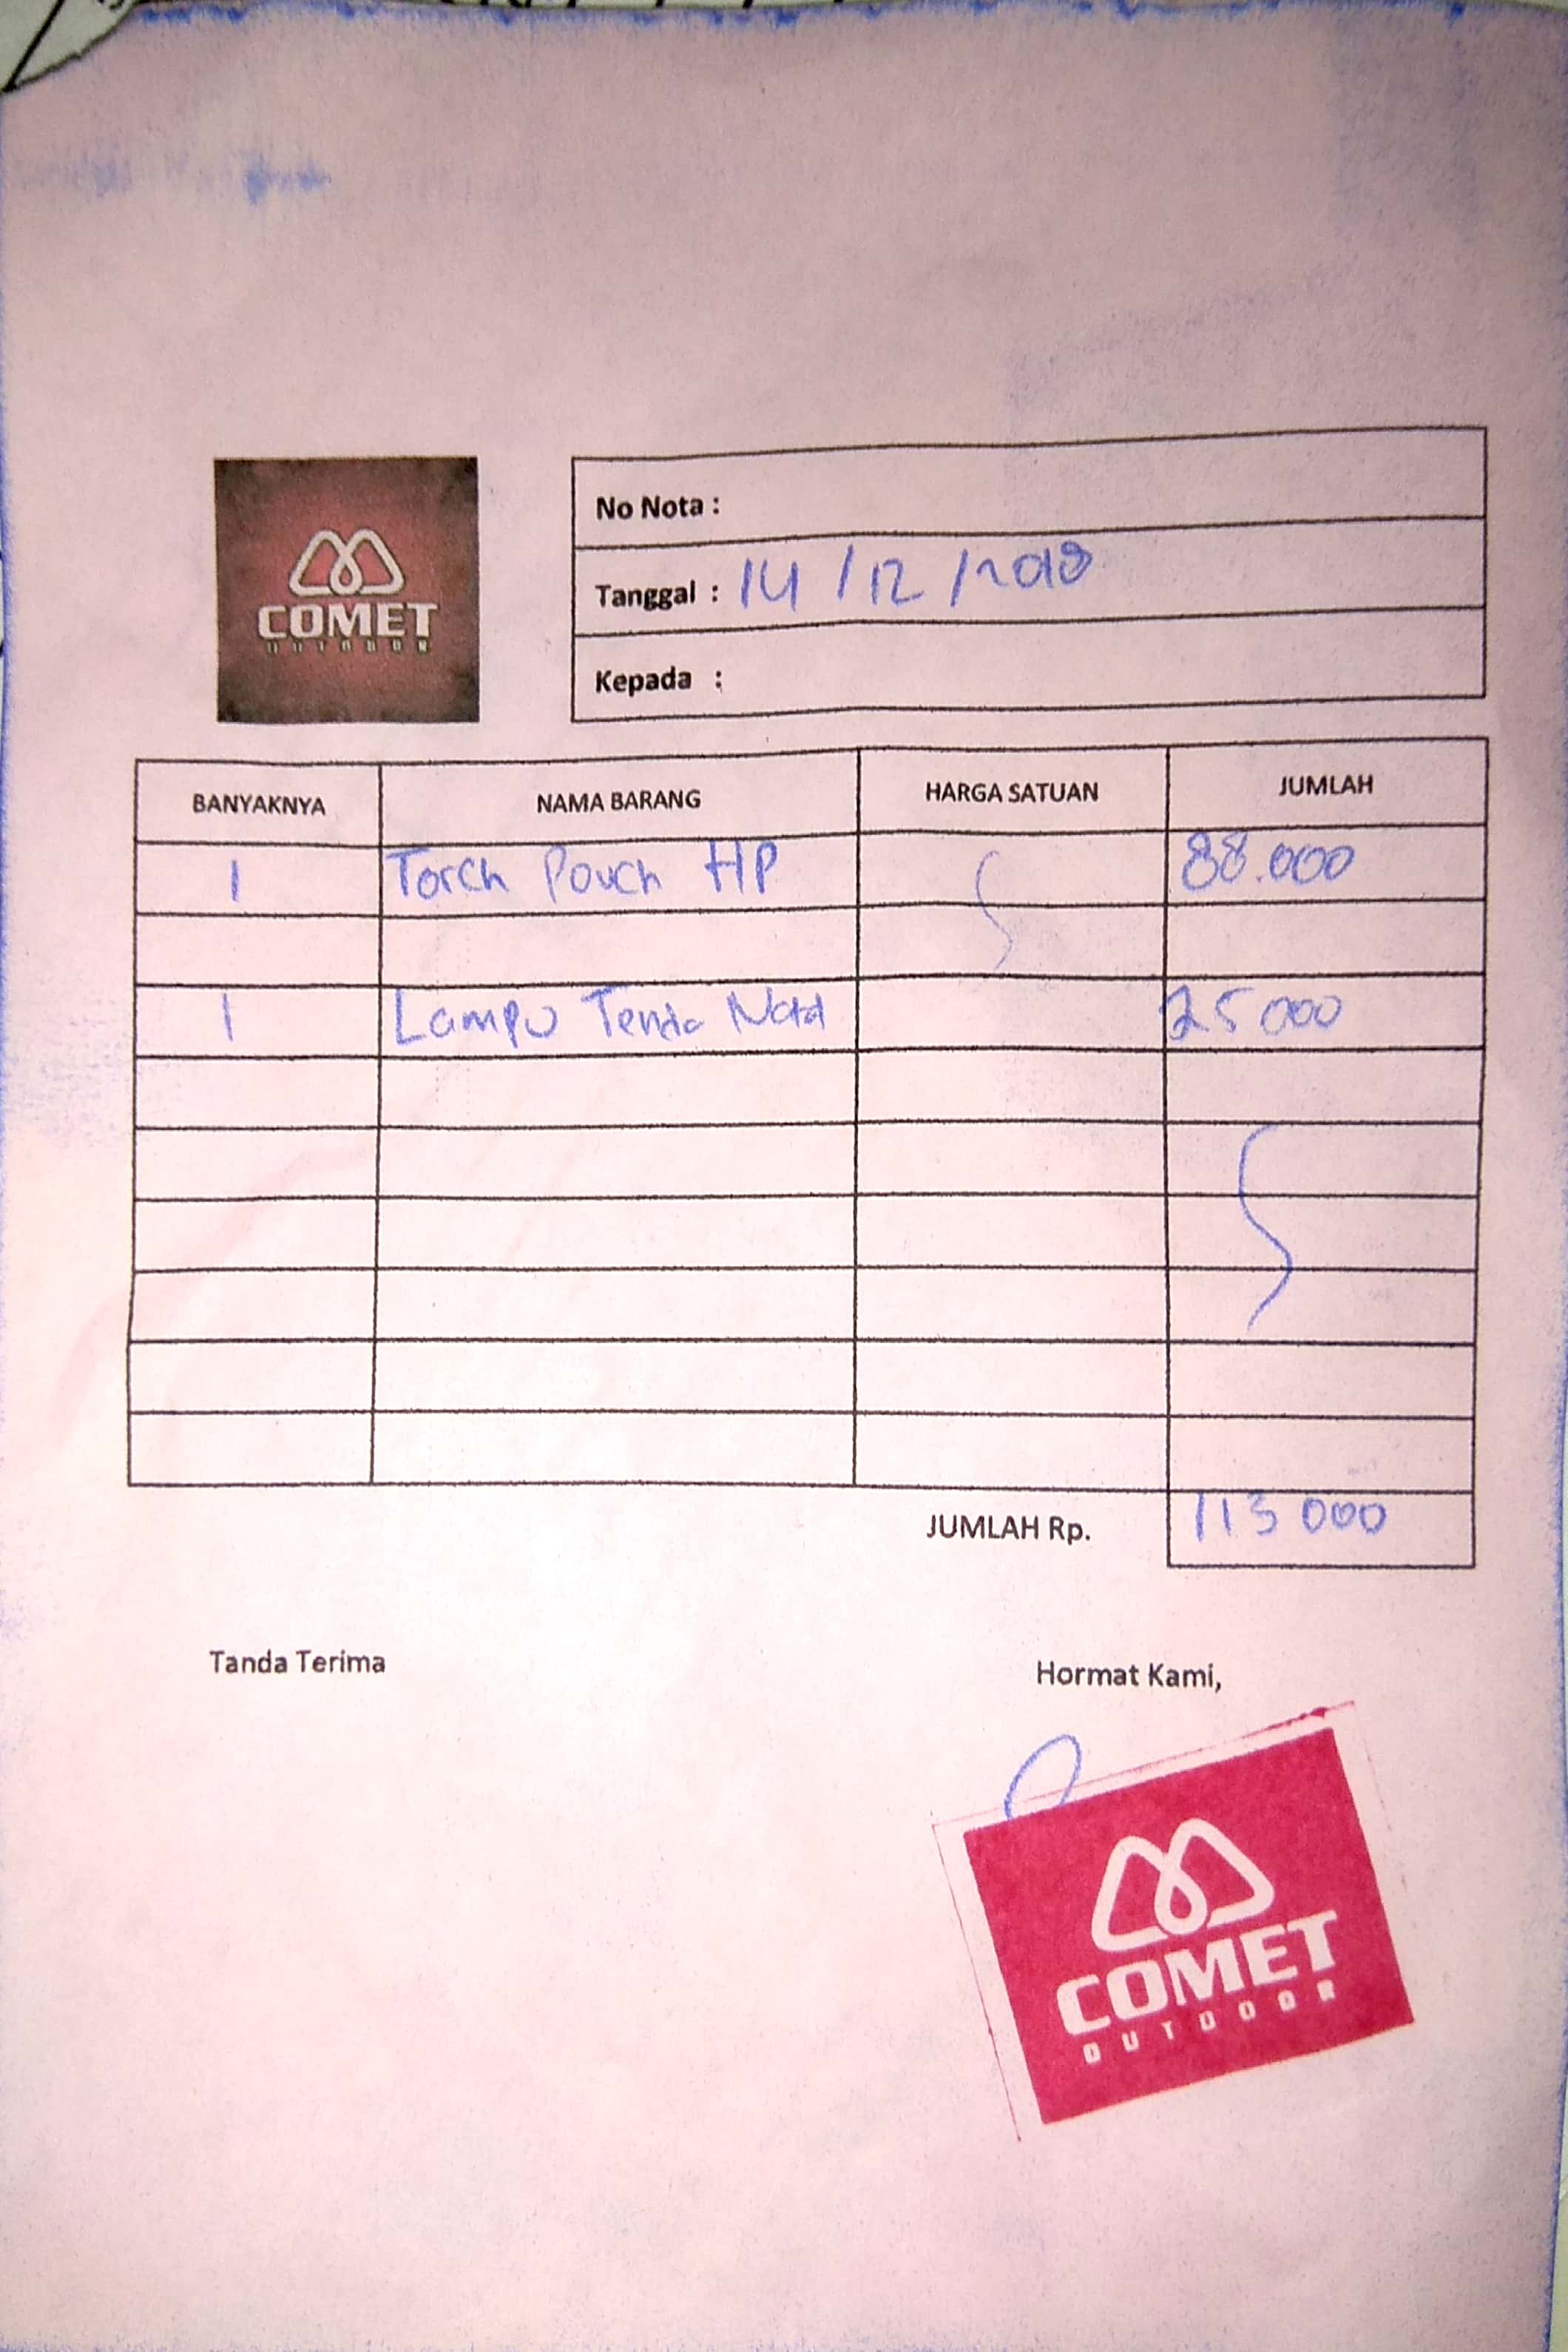 COMET
OUTDOOR
No Nota :
Tanggal : 14/12/2018
Kepada :
BANYAKNYA NAMA BARANG HARGA SATUAN JUMLAH
1 Torch Pouch HP 88.000
1 Lampu Tenda 25 000
JUMLAH Rp. 113 000
Tanda Terima Hormat Kami,
COMET
OUTDOOR